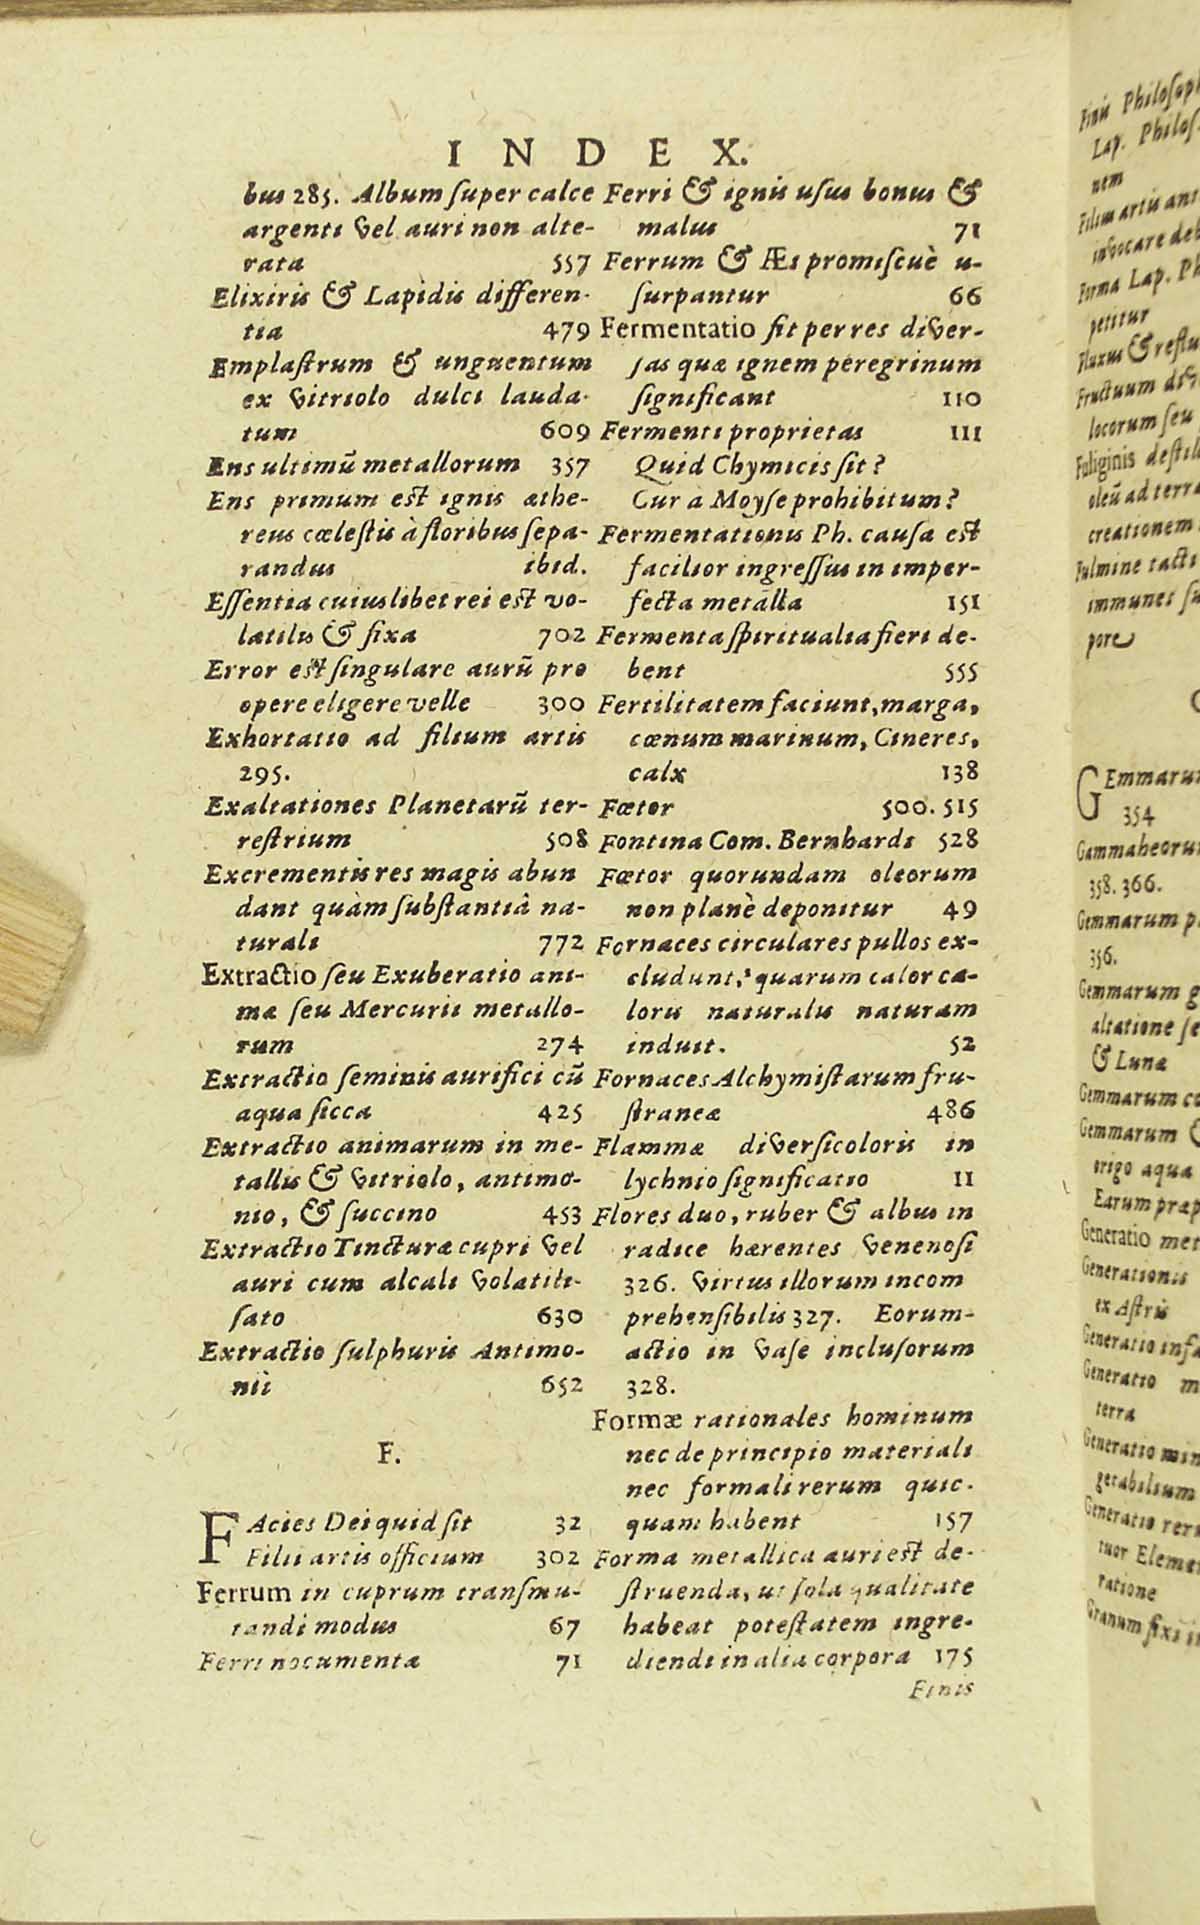 INDEX.
bus 285. Album ſuper calce
argenti vel auri non alte-
rata 557
Elixiris & Lapidis differen-
tia 479
Emplaſtrum & unguentum
ex vitriolo dulci lauda-
tum 609
Ens ultimū metallorum 357
Ens primum est ignis æthe-
reus cœleſtis à floribus ſepa-
randus ibid.
Eſſentia cuiuslibet rei est vo-
latilis & fixa 702
Error est ſingulare aurū pro
opere eligere velle 300
Exhortatio ad filium artis
295.
Exaltationes Planetarū ter-
reſtrium 508
Excrementis res magis abun
dant quàm ſubſtantiâ na-
turali 772
Extractio ſeu Exuberatio ani-
mæ ſeu Mercurii metallo-
rum 274
Extractio ſeminis aurifici cū
aqua ſicca 425
Extractio animarum in me-
tallis & vitriolo, antimo-
nio, & ſuccino 453
Extractio Tincturæ cupri vel
auri cum alcali volatili-
ſato 630
Extractio ſulphuris Antimo-
nii 652
F.
FAcies Dei quid ſit 32
Filii artis officium 302
Ferrum in cuprum tranſmu-
tandi modus 67
Ferri nocumenta 71
Ferri & ignis uſus bonus &
malus 71
Ferrum & Æs promiſcuè u-
ſurpantur 66
Fermentatio fit per res diver-
ſas quæ ignem peregrinum
ſignificant 110
Fermenti proprietas 111
Quid Chymicis ſit?
Cur à Moyſe prohibitum?
Fermentationis Ph. cauſa est
facilior ingreſſus in imper-
fecta metalla 151
Fermenta ſpiritualia fieri de-
bent 555
Fertilitatem faciunt, marga,
cœnum marinum, Cineres,
calx 138
Fœtor 500. 515
Fontina Com. Bernhardi 528
Fœtor quorundam oleorum
non planè deponitur 49
Fornaces circulares pullos ex-
cludunt, quarum calor ca-
loris naturalis naturam
induit. 52
Fornaces Alchymiſtarum fru-
ſtraneæ 486
Flammæ diverſicoloris in
lychnio ſignificatio 11
Flores duo, ruber & albus in
radice hærentes venenoſi
326. Virtus illorum incom
prehenſibilis 327. Eorum-
actio in vaſe incluſorum
328.
Formæ rationales hominum
nec de principio materiali
nec formali rerum quic-
quam habent 157
Forma metallica auri est de-
ſtruenda, ut ſola qualitate
habeat poteſtatem ingre-
diendi in alia corpora 175
Finis
Finis
Lap.
nem
Filium artis
invocare
Forma Lap.
petitur
Fluxus &
Fructuum
locorum ſeu
Fuliginis
oleū ad
creationem
Fulmine tacti
immunes
pore
GEmmarum
354
358. 366.
Gemmarum
356.
Gemmarum
altatione
& Lunæ
Gemmarum
Gemmarum
origo aqua
Earum
Generatio
Generationis
ex Aſtris
Generatio
Generatio
terra
Generatio
getabilium
Generatio
ratione
Granum fixi